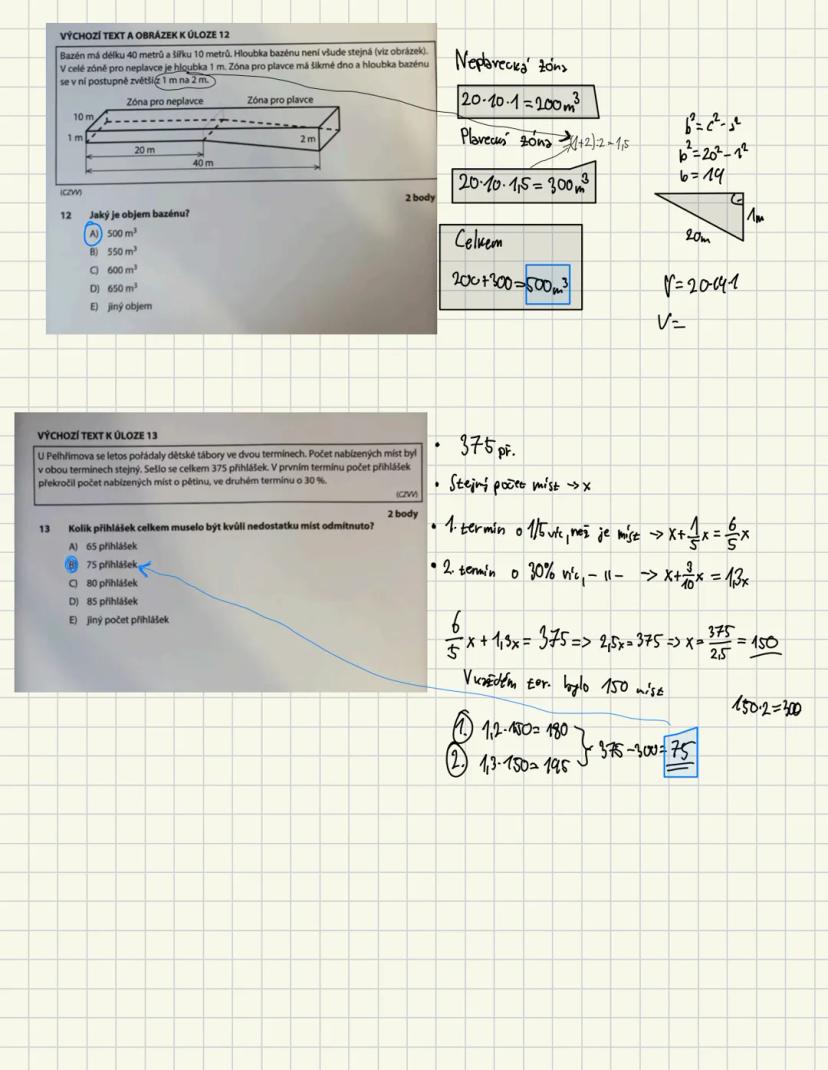 VÝCHOZÍ TEXT A OBRÁZEK K ÚLOZE 12
Bazén má délku 40 metrů a šířku 10 metrů. Hloubka bazénu není všude stejná (viz obrázek).
V celé zóně pro neplavce je hloubka 1 m. Zóna pro plavce má šikmé dno a hloubka bazénu
se v ní postupně zvětší z 1 m na 2 m.
Zóna pro neplavce
Zóna pro plavce
10 m
1 m
2 m
20 m
40 m
(CZVV)
2 body
12 Jaký je objem bazénu?
A) 500 m³
B) 550 m³
C) 600 m³
D) 650 m³
E) jiný objem
Neplavecká zóna
20·10·1=200m³
Plavecká zóna → (1+2):2=1,5
20·10·1,5=300m³
Celkem
200+300=500m³
b²=c²-a²
b²=20²-1²
b=19
1m
20m
V=20·19·1
V=
VÝCHOZÍ TEXT K ÚLOZE 13
U Pelhřimova se letos pořádaly dětské tábory ve dvou termínech. Počet nabízených míst byl
v obou termínech stejný. Sešlo se celkem 375 přihlášek. V prvním termínu počet přihlášek
překročil počet nabízených míst o pětinu, ve druhém termínu o 30 %.
(CZVV)
2 body
13 Kolik přihlášek celkem muselo být kvůli nedostatku míst odmítnuto?
A) 65 přihlášek
B) 75 přihlášek
C) 80 přihlášek
D) 85 přihlášek
E) jiný počet přihlášek
• 375 př.
• Stejný počet míst → x
• 1. termín o 1/5 víc, než je míst → x+1/5x=6/5x
• 2. termín o 30% víc, -11- → x+3/10x=1,3x
6/5x+1,3x=375=>2,5x=375=>x=375/2,5=150
V každém ter. bylo 150 míst
150·2=300
1. 1,2·150=180
375-300=75
2. 1,3·150=195